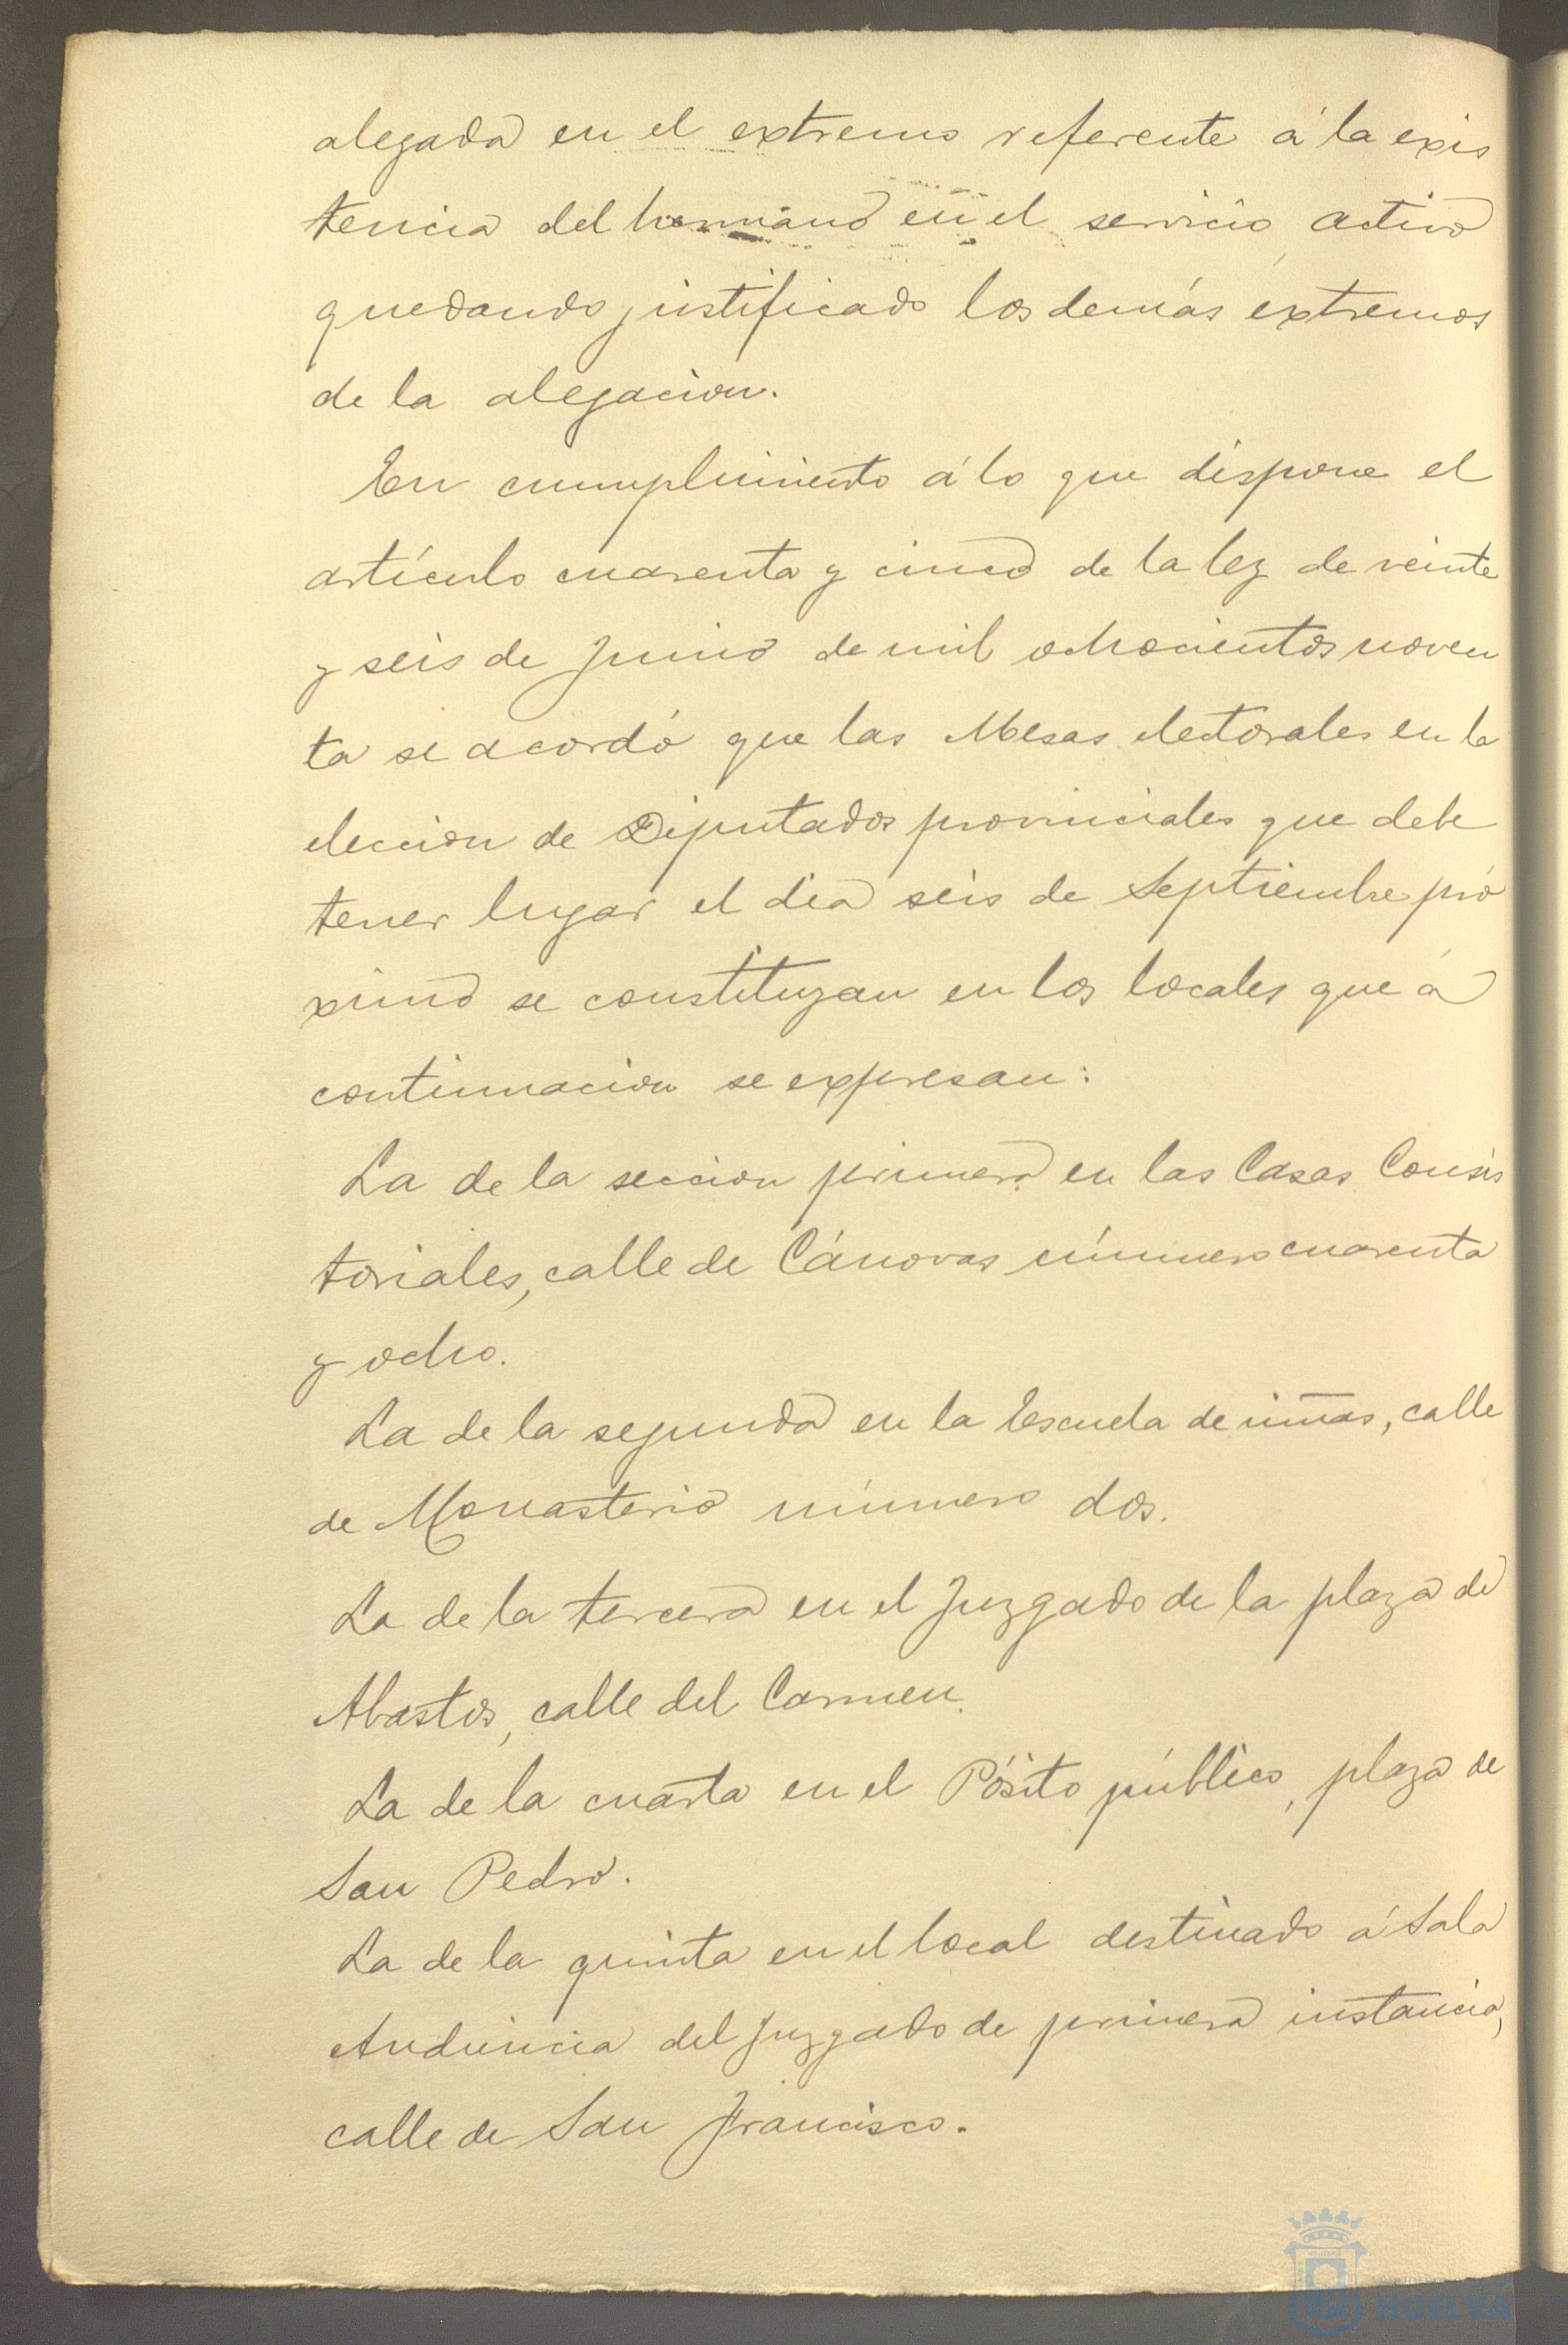 alegada en el extremo referente á la exis
tencia del hermano en el servicio activo
quedando justificado los demás extremos
de la alegacion.
En cumplimiento á lo que dispone el
artículo cuarenta y cinco de la ley de veinte
y seis de Junio de mil ochocientos noven
ta se acordó que las Mesas electorales en la
eleccion de Diputados provinciales que debe
tener lugar el dia seis de Septiembre pró
ximo se constituyan en los locales que á
continuacion se expresan:
La de la seccion primera en las Casas Consis
toriales, calle de Cánovas número cuarenta
y ocho.
La de la segunda en la Escuela de niñas, calle
de Monasterio número dos.
La de la tercera en el Juzgado de la plaza de
Abastos, calle del Carmen.
La de la cuarta en el Pósito público, plaza de
San Pedro.
La de la quinta en el local destinado á Sala
Audiencia del Juzgado de primera instancia,
calle de San Francisco.
HUELVA